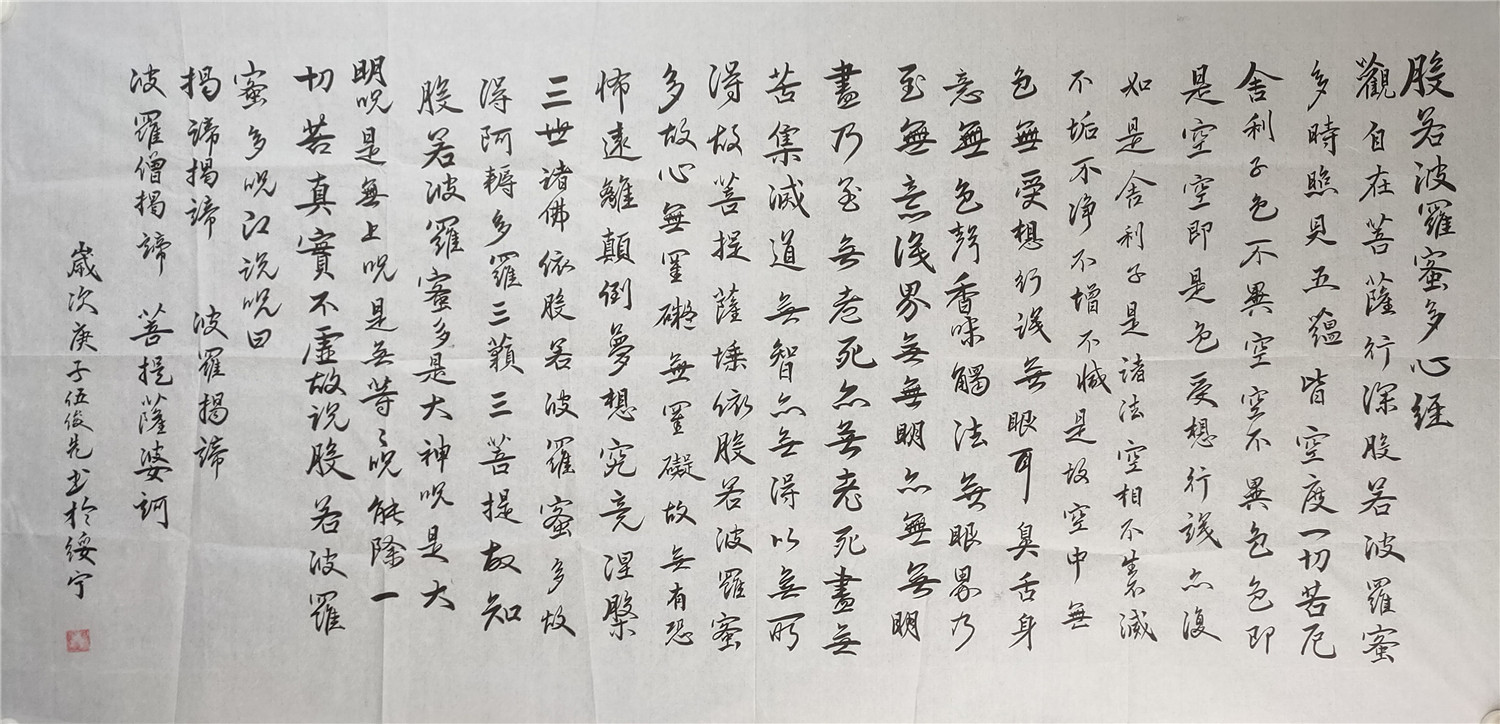 般若波羅蜜多心經
觀自在菩薩行深般若波羅蜜
多時照見五蘊皆空度一切苦厄
舍利子色不異空空不異色色即
是空空即是色受想行識亦復
如是舍利子是諸法空相不生不滅
不垢不净不增不減是故空中無
色無受想行識無眼耳鼻舌身
意無色聲香味觸法無眼界乃
至無意識界無無明亦無無明
盡乃至無老死亦無老死盡無
苦集滅道無智亦無得以無所
得故菩提薩埵依般若波羅蜜
多故心無罣礙無罣礙故無有恐
怖遠離顛倒夢想究竟涅槃
三世諸佛依般若波羅蜜多故
得阿耨多羅三藐三菩提故知
般若波羅蜜多是大神咒是大
明咒是無上咒是無等々咒能除一
切苦真實不虛故説般若波羅
蜜多咒即説咒曰
揭諦揭諦 波羅揭諦
波羅僧揭諦 菩提薩婆訶
歲次庚子伍俊先书於綏宁